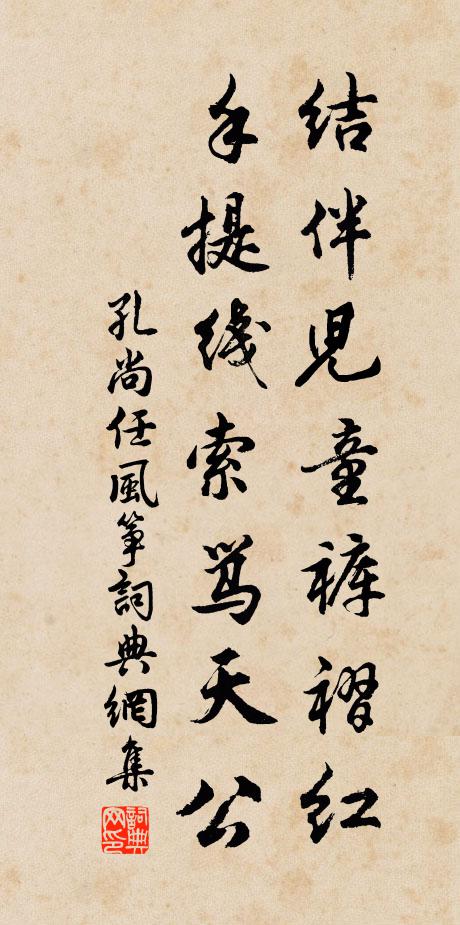 結伴兒童裤褶紅
手提线索骂天公
孔尚任風筝詞典網集
詞典网印